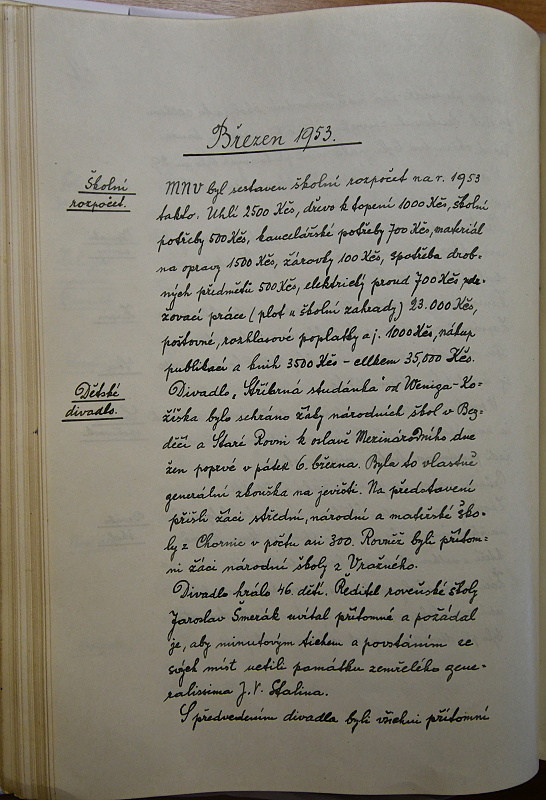 Březen 1953.
Školní
rozpočet.
MNV byl sestaven školní rozpočet na r. 1953
takto. Uhlí 2500 Kčs, dřevo k topení 1000 Kčs, školní
potřeby 500 Kčs, kancelářské potřeby 700 Kčs, materiál
na opravy 1500 Kčs, žárovky 100 Kčs, spotřeba drob-
ných předmětů 500 Kčs, elektrický proud 700 Kčs, udr-
žovací práce (plot u školní zahrady) 23.000 Kčs,
poštovné, rozhlasové poplatky a j. 1000 Kčs, nákup
publikací a knih 3500 Kčs - celkem 35,000 Kčs.
Dětské
divadlo.
Divadlo „Stříbrná studánka" od Weniga-Ko-
žíška bylo sehráno žáky národních škol v Bez-
děčí a Staré Rovni k oslavě Mezinárodního dne
žen poprvé v pátek 6. března. Byla to vlastně
generální zkouška na jevišti. Na představení
přišli žáci střední, národní a mateřské ško-
ly z Chornic v počtu asi 300. Rovněž byli přítom-
ni žáci národní školy z Vražného.
Divadlo hrálo 46 dětí. Ředitel roveňské školy
Jaroslav Šmerák uvítal přítomné a požádal
je, aby minutovým tichem a povstáním ze
svých míst uctili památku zemřelého gene-
ralissima J. V. Stalina.
S předvedením divadla byli všichni přítomní